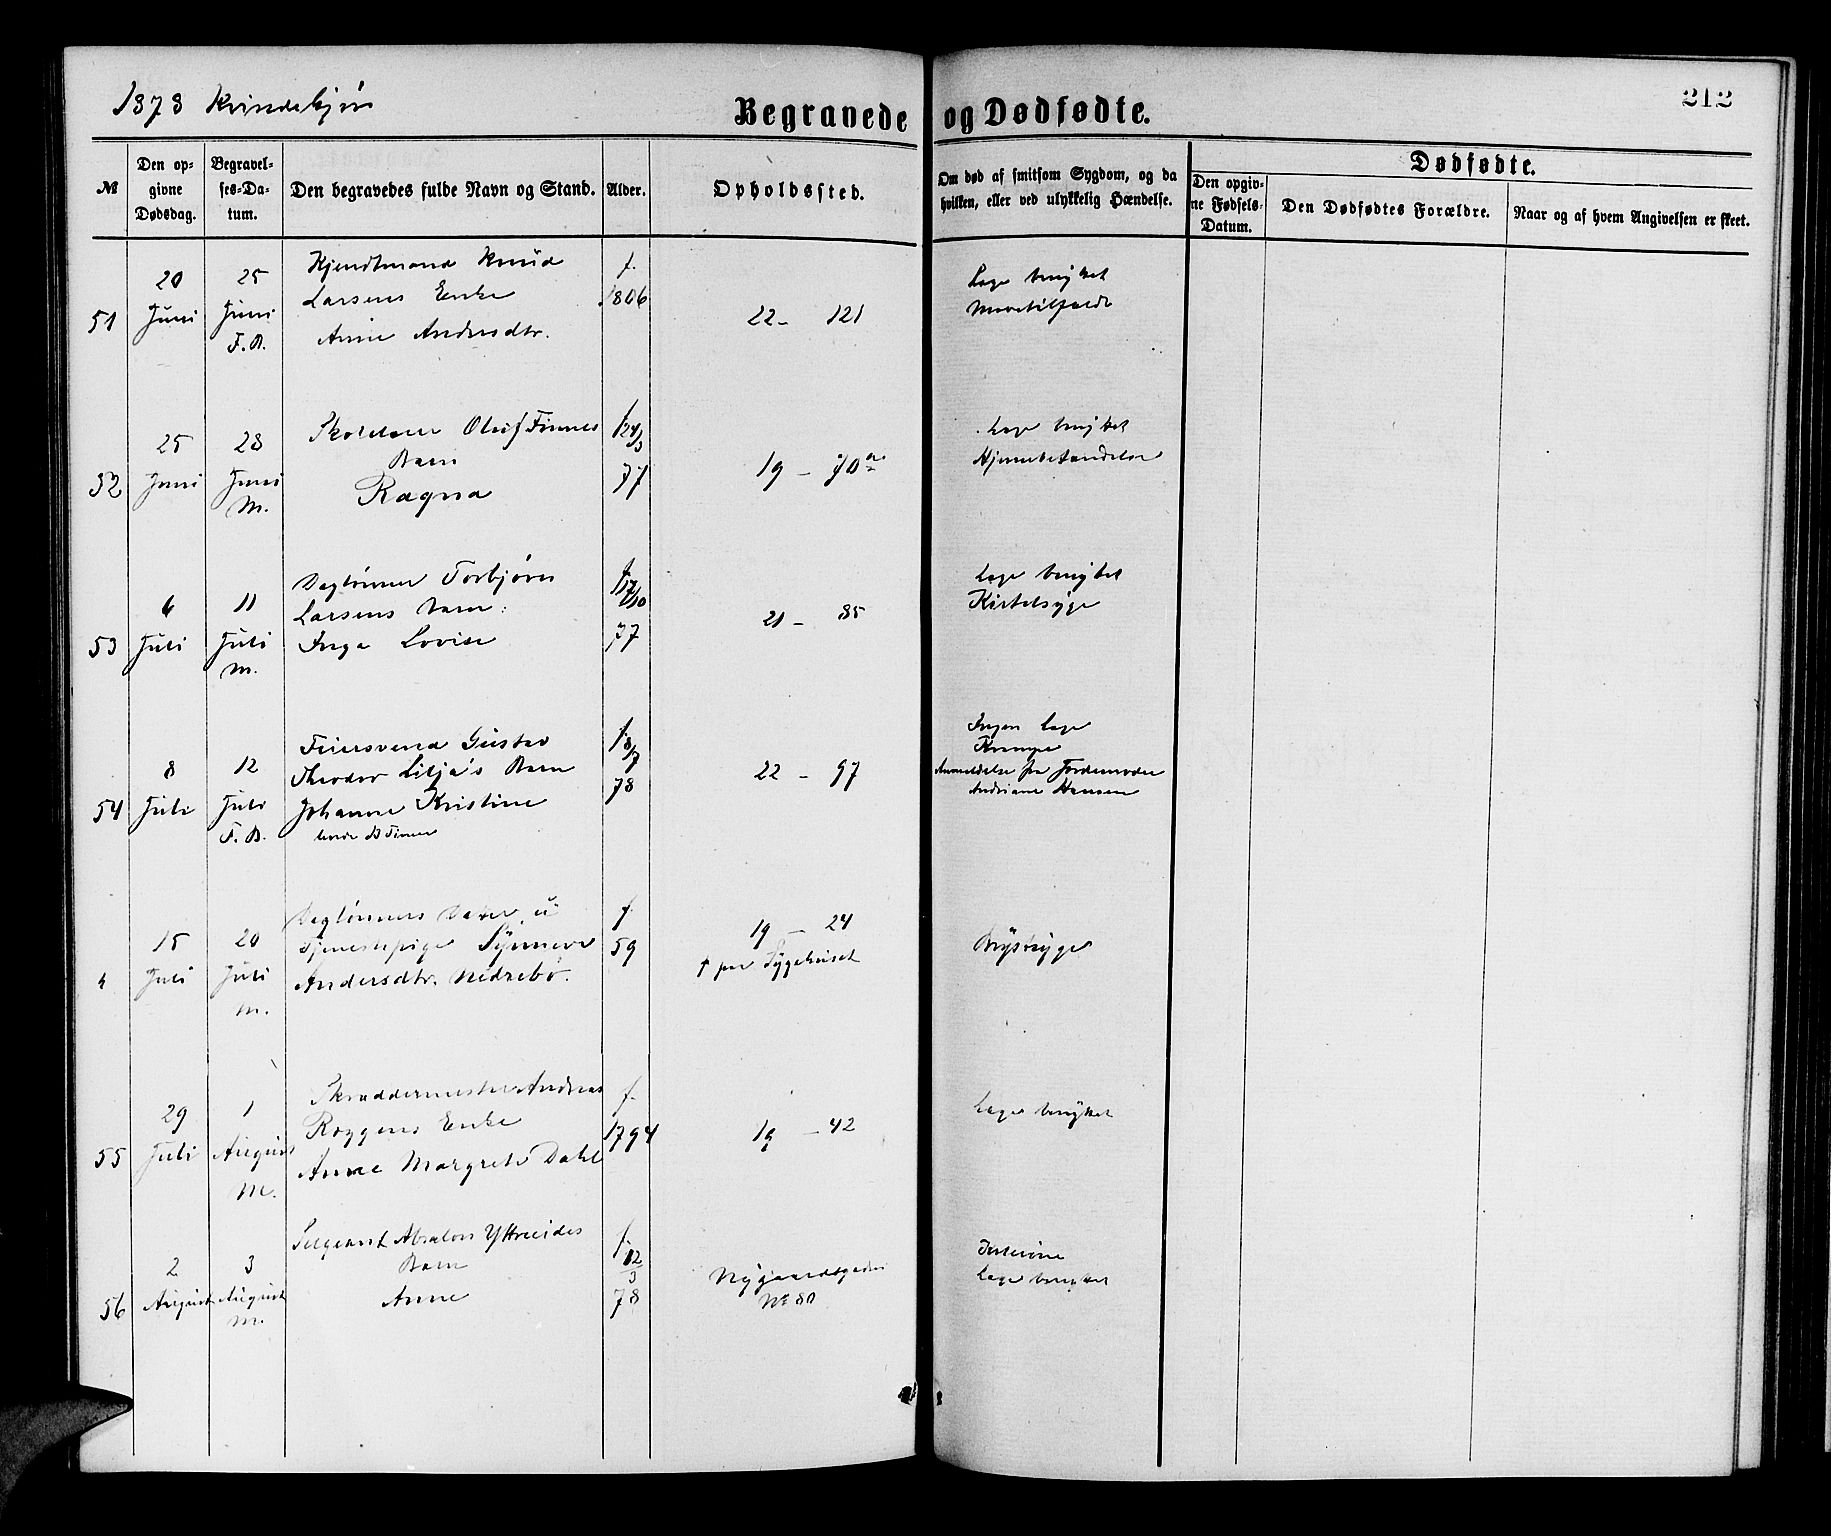 1878 Kvindekjøn
Begravede og Dødfødte.
212
№
Den opgivne Dødsdag.
Begravelses-Datum.
Den begravedes fulde Navn og Stand.
Alder.
Opholdssted.
Om død af smitsom Sygdom, og da hvilken, eller ved ulykkelig Hændelse.
Dødfødte.
Den opgivne Fødsels-Datum.
Den Dødfødtes Forældre.
Naar og af hvem Angivelsen er skeet.
51
20 Juni
25 Juni F.B.
Kjendtmand Knud
Larsens Enke
Anne Andersdtr.
f. 1806
22 – 121
Læge benyttet
52
25 Juni
28 Juni M.
Olaf Finnes
Barn
Ragna
f 24/3 77
19 – 70a
Læge benyttet
Hjernebetændelse
53
6 Juli
11 Juli M.
Daglønner Torbjørn
Larsens Barn:
Inga Lovise
f 17/10 77
21 – 85
Læge benyttet
Kirtelsyge
54
8 Juli
12 Juli F.B.
Feiersvend Gustav
Theodor Lilja's Barn
Johanne Kristine
f 8/7 78
22 – 97
Ingen Læge
Krampe
Anmeldelse fra Jordemoder
Andriane Hansen
15 Juli
20 Juli M.
Daglønners Datter u
Tjenestepige Synneve
Andersdtr. Nedrebø.
f. 59
19 – 24
† paa Sygehuset
Brystsyge
55
29 Juli
1 August M.
Skræddermester Andreas
Roggens Enke
Anne Margrete Dahl
f. 1794
19 – 42
Læge benyttet
56
2 August
3 August M.
Sergeant Absalon Yttreeides
Barn
Anne
f. 12/3 78
Nygaardsgaden
№ 80
Læge benyttet